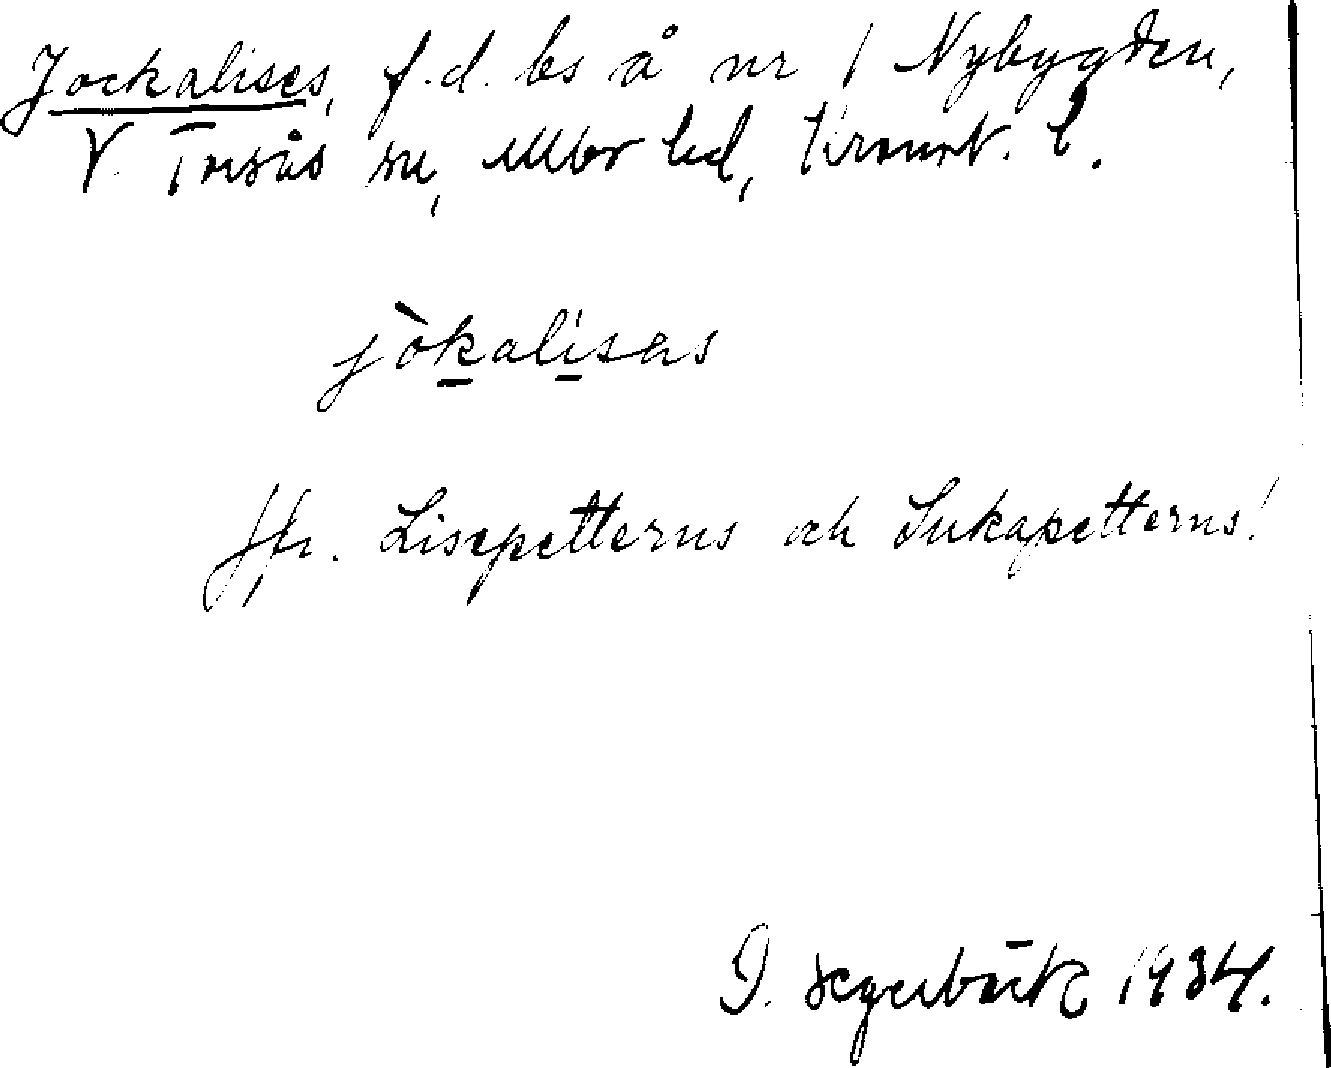 Jockalises, f.d. bs å nr 1 Nybygden,
V. Torsås sn, Allbo hd, Kronob. l.
jòkalisas
Jfr. Lisepetterns och Sukapetterns!
I. Segerbäck 1934.